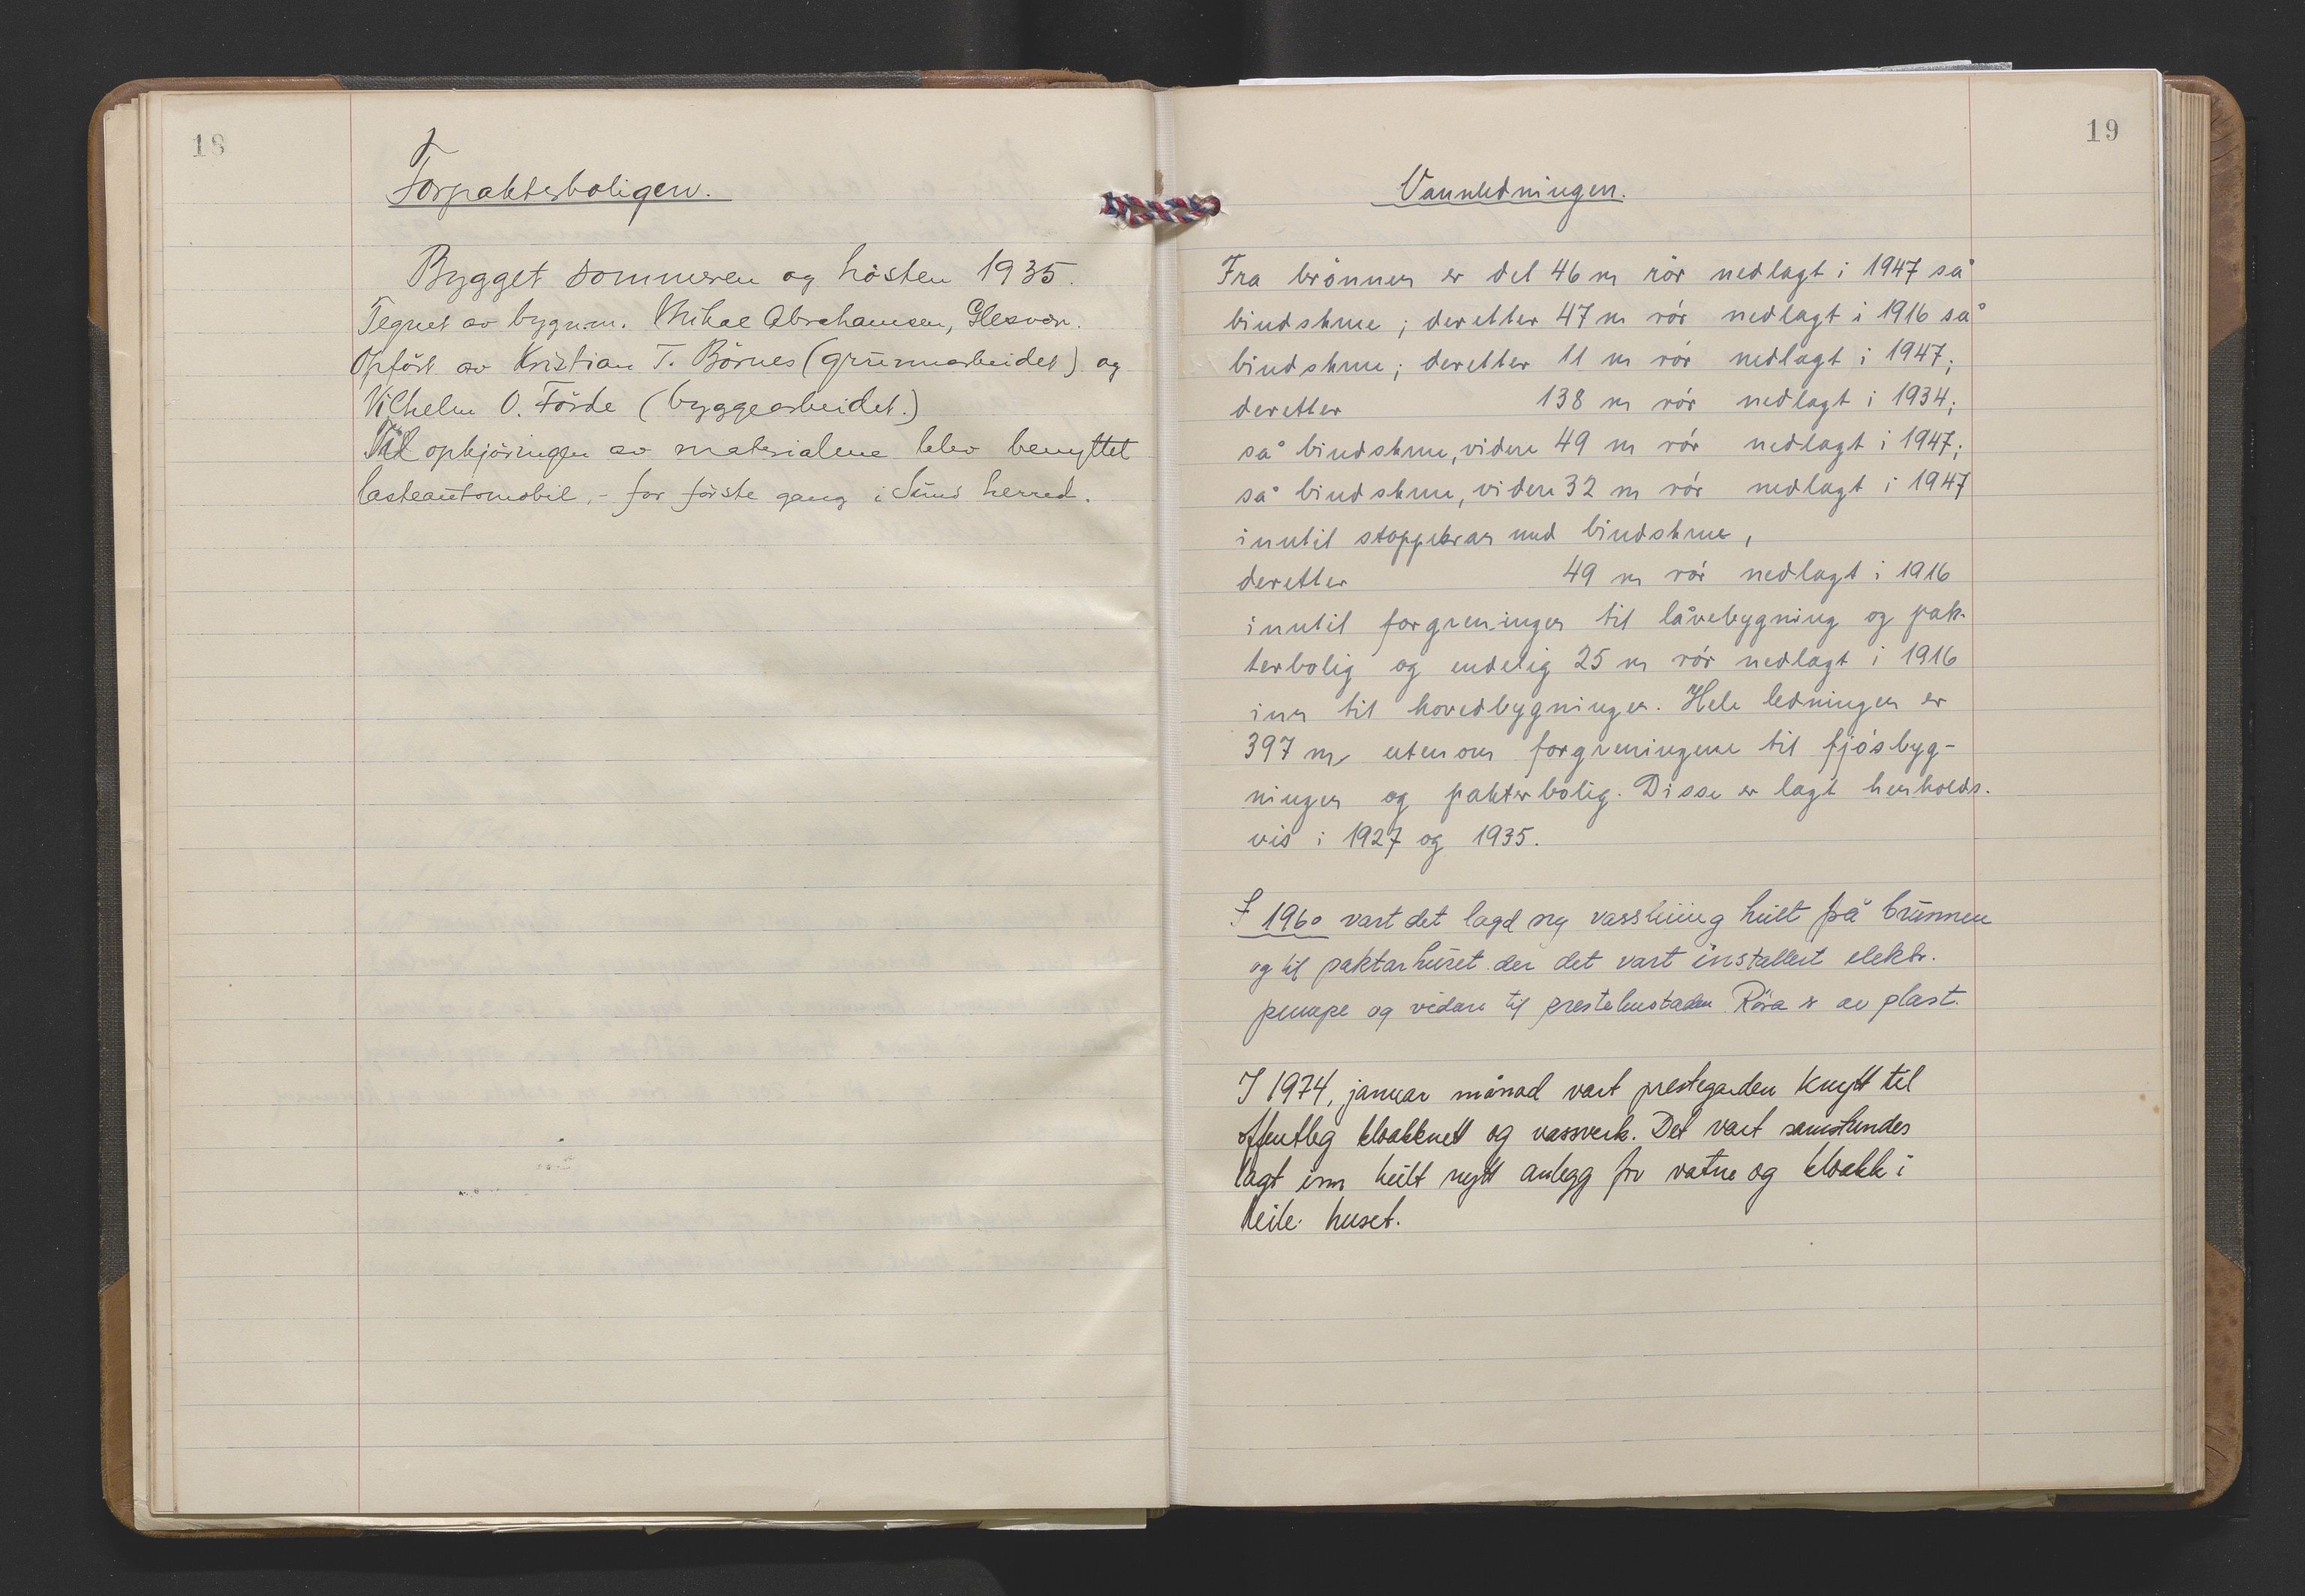 18
Forpakterboligen.
Bygget sommeren og hösten 1935.
Tegnet av bygnm. Mikal Abrahamsen, Glesvær.
Opfört av Kristian T. Börnes (grunnarbeidet) og
Vilhelm O. Förde (byggearbeidet.)
Til opkjöringen av materialene blev benyttet
lasteautomobil, - for förste gang i Sund herred.
19
Vannledningen.
Fra brönnen er det 46 m rör nedlagt i 1947 så
bindskrue ; deretter 47 m rör nedlagt i 1916 så
bindskrue ; deretter 11 m rör nedlagt i 1947;
deretter 138 m rör nedlagt i 1934;
så bindskrue, videre 49 m rör nedlagt i 1947;
så bindskrue, videre 32 m rör nedlagt i 1947
inntil stoppekran med bindskrue,
deretter 49 m rör nedlagt i 1916
inntil forgreningen til låvebygning og pak-
terbolig og endelig 25 m rör nedlagt i 1916
inn til hovedbygningen. Hele ledningen er
397 m utenom forgreningene til fjösbyg-
ningen og pakterbolig. Disse er lagt henholds-
vis i 1927 og 1935.
I 1960 vart det lagd ny vassleiing heilt frå brunnen
og til paktarhuset der det vart installert elektr.
pumpe og vidare til prestebustaden. Röra er av plast.
I 1974, januar månad vart prestegarden knytt til
offentleg kloakknett og vassverk. Det vart samstundes
lagt inn heilt nytt anlegg for vatne og kloakk i
heile huset.